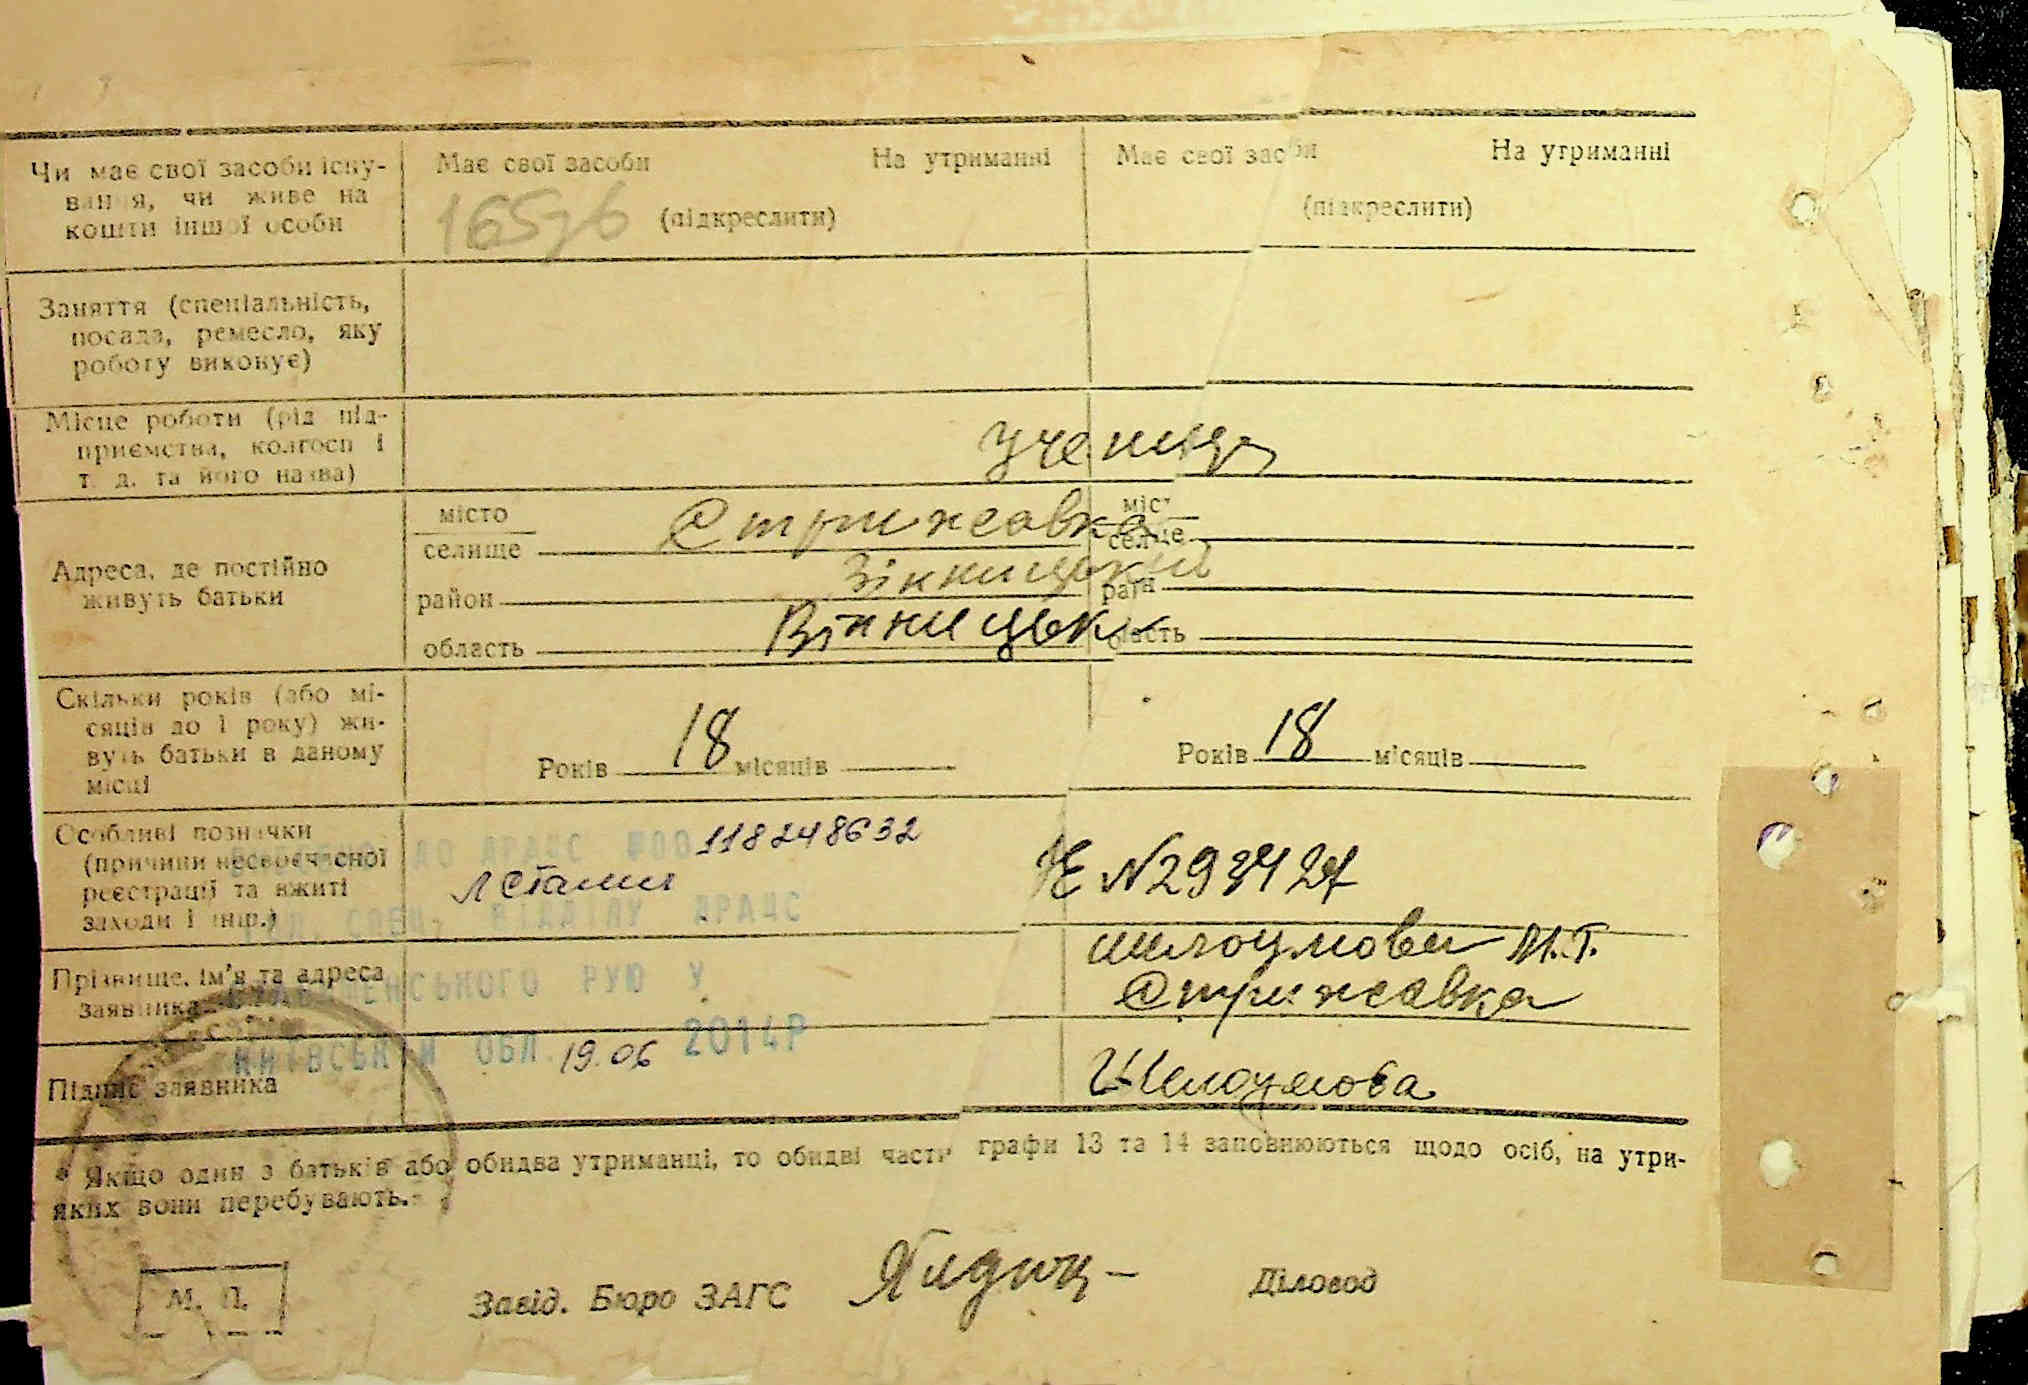 Чи має свої засоби існу-
вання, чи живе на
кошти іншої особи
Має свої засоби На утриманні
(підкреслити)
Має свої засоби На утриманні
(підкреслити)
Заняття (спеціальність,
посада, ремесло, яку
роботу виконує)
Місце роботи (рід під-
приємства, колгосп і
т. д. та його назва)
Адреса, де постійно
живуть батьки
місто Стрижавка
селище
район Вінницький
область Вінницьк
міст
селище
область
Скільки років (або мі-
сяців до 1 року) жи-
вуть батьки в даному
місці
Років 18 місяців
Років 18 місяців
Особливі позначки
(причини несвоєчасної
реєстрації та вжиті
заходи і інш.)
118248632
ДО ДРАЦС
ВІДДІЛУ ДРАЦС
№293427
Прізвище, ім'я та адреса
заявника
РУЮ У
М.Т.
Стрижавка
КИЇВСЬКІЙ ОБЛ. 19.06 2014Р
Підпис заявника
* Якщо один з батьків або обидва утриманці, то обидві части графи 13 та 14 заповнюються щодо осіб, на утри-
яких вони перебувають.
М. П.
Завід. Бюро ЗАГС
Діловод